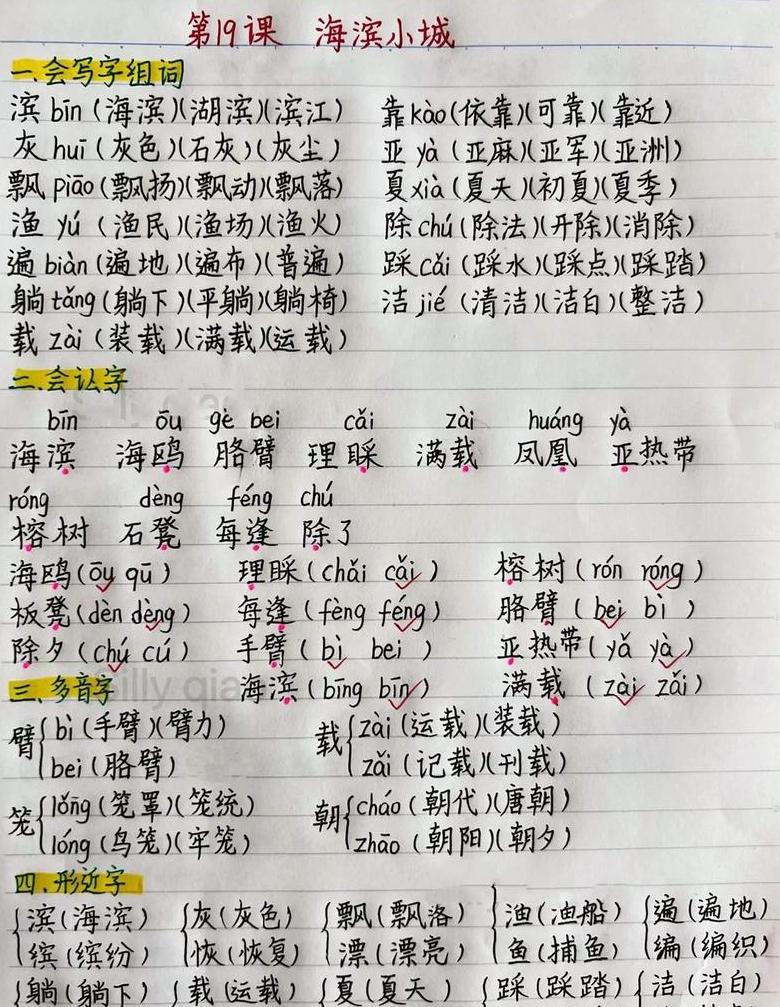 第19课 海滨小城
一.会写字组词
滨 bīn (海滨)(湖滨)(滨江) 靠 kào (依靠)(可靠)(靠近)
灰 huī (灰色)(石灰)(灰尘) 亚 yà (亚麻)(亚军)(亚洲)
飘 piāo (飘扬)(飘动)(飘落) 夏 xià (夏天)(初夏)(夏季)
渔 yú (渔民)(渔场)(渔火) 除 chú (除法)(开除)(消除)
遍 biàn (遍地)(遍布)(普遍) 踩 cǎi (踩水)(踩点)(踩踏)
躺 tǎng (躺下)(平躺)(躺椅) 洁 jié (清洁)(洁白)(整洁)
载 zài (装载)(满载)(运载)
二.会认字
bīn ōu gē bei cǎi zài huáng yà
海滨 海鸥 胳臂 理睬 满载 凤凰 亚热带
róng dèng féng chú
榕树 石凳 每逢 除了
海鸥(ōu qū) 理睬(chǎi cǎi) 榕树(rón róng)
板凳(dèn dèng) 每逢(fèng féng) 胳臂(bei bì)
除夕(chú cú) 手臂(bì bei) 亚热带(yǎ yà)
三.多音字 海滨(bīng bīn) 满载(zài zǎi)
臂 bì (手臂)(臂力) 载 zài (运载)(装载)
bei (胳臂) zǎi (记载)(刊载)
笼 lǒng (笼罩)(笼统) 朝 cháo (朝代)(唐朝)
lóng (鸟笼)(牢笼) zhāo (朝阳)(朝夕)
四.形近字
滨(海滨) 灰(灰色) 飘(飘洛) 渔(渔船) 遍(遍地)
缤(缤纷) 恢(恢复) 漂(漂亮) 鱼(捕鱼) 编(编织)
躺(躺下) 载(运载) 夏(夏天) 踩(踩踏) 洁(洁白)